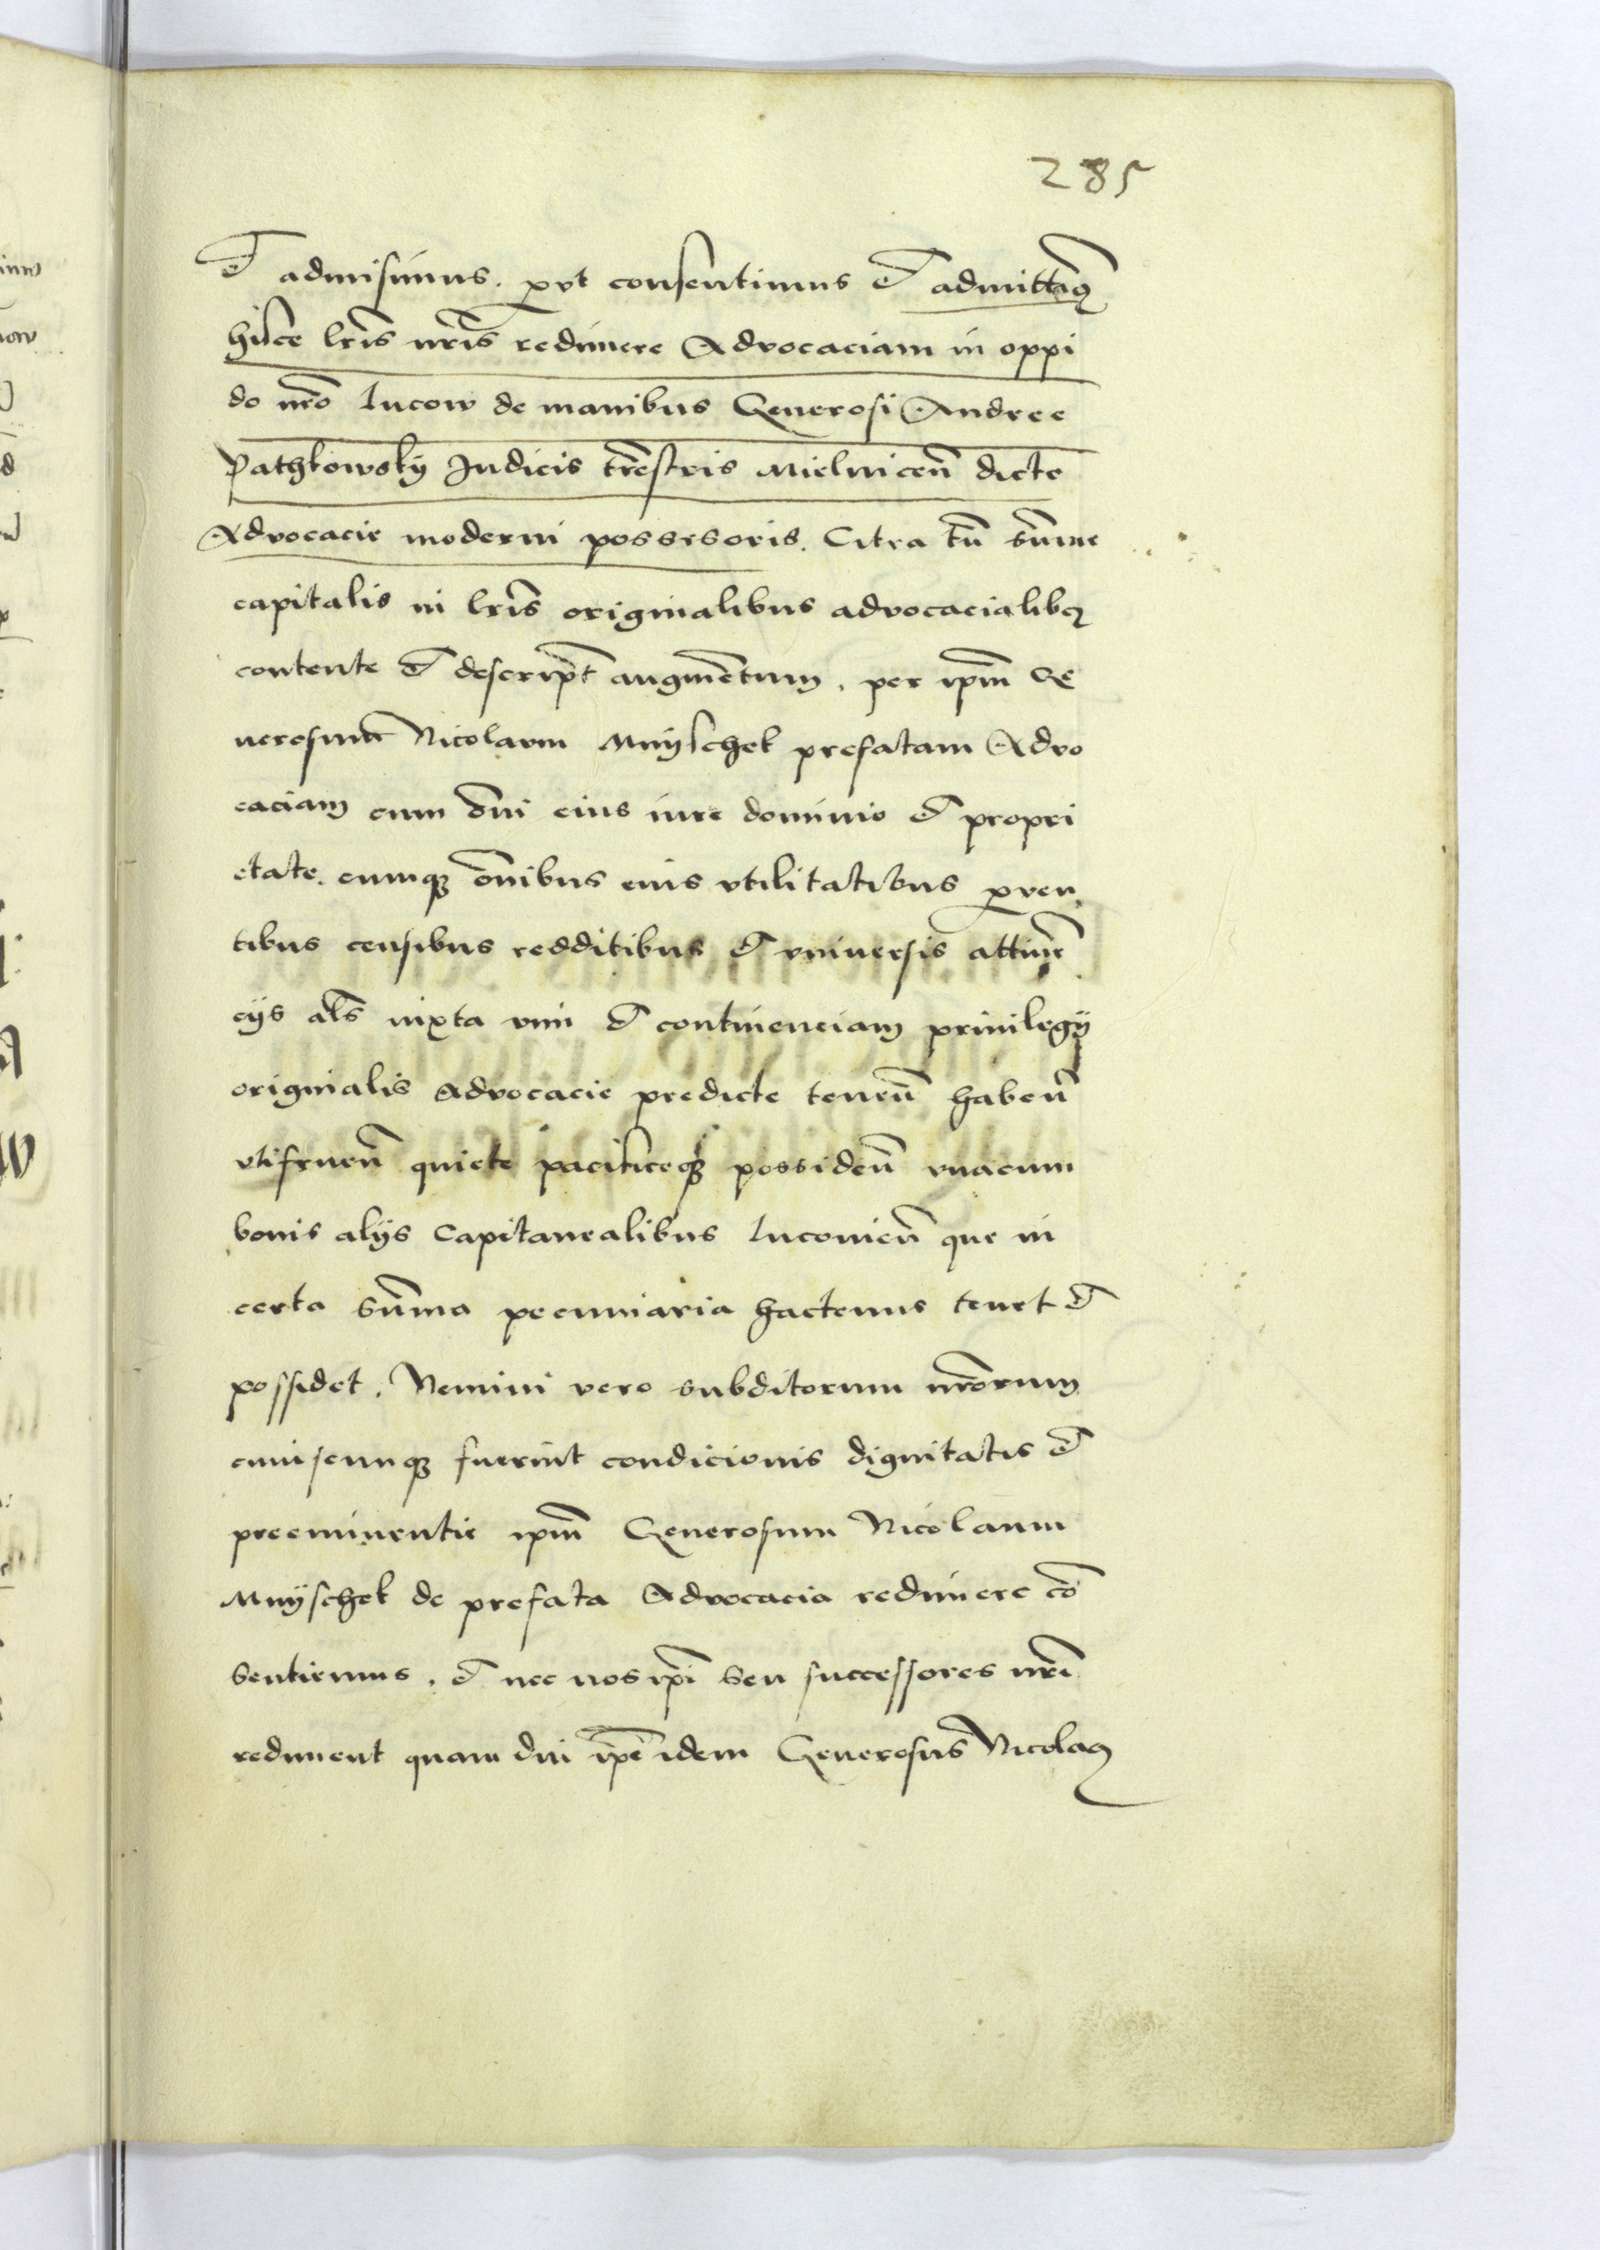 285
et admisimus. prvt consentimus et admittimꝰ
hisce lris nris redimere Advocaciam in oppi
do nro lucow de manibus Generosi Andree
Pathkowsky Judicis trestris Mielnicen dicte
Advocacie moderni possessoris. Citra tn summe
capitalis in lris originalibus advocacialibꝰ
contente et descript augmentum. per ipm Ge
nerosum Nicolaum Myschek prefatam Advo
caciam cum omni eius iure dominio et propri
etate. cumqꝫ omnibus eius vtilitatibus proven
tibus censibus redditibus et vniversis attinen
cijs als iuxta vim et continenciam privilegij
originalis Advocacie predicte tenen haben
vtifruen quiete pacificeqꝫ possiden vnacum
bonis alijs Capitanealibus lucovien que in
certa summa pecuniaria hactenus tenet et
possidet. Nemini vero subditorum nrorum
cuiuscunqꝫ fuerint condicionis dignitatis et
preeminentie ipm Generosum Nicolaum
Myschek de prefata Advocacia redimere con
sentiemus. et nec nos ipi seu successores nri
rediment quam diu ipe idem Generosus Nicolaꝰ